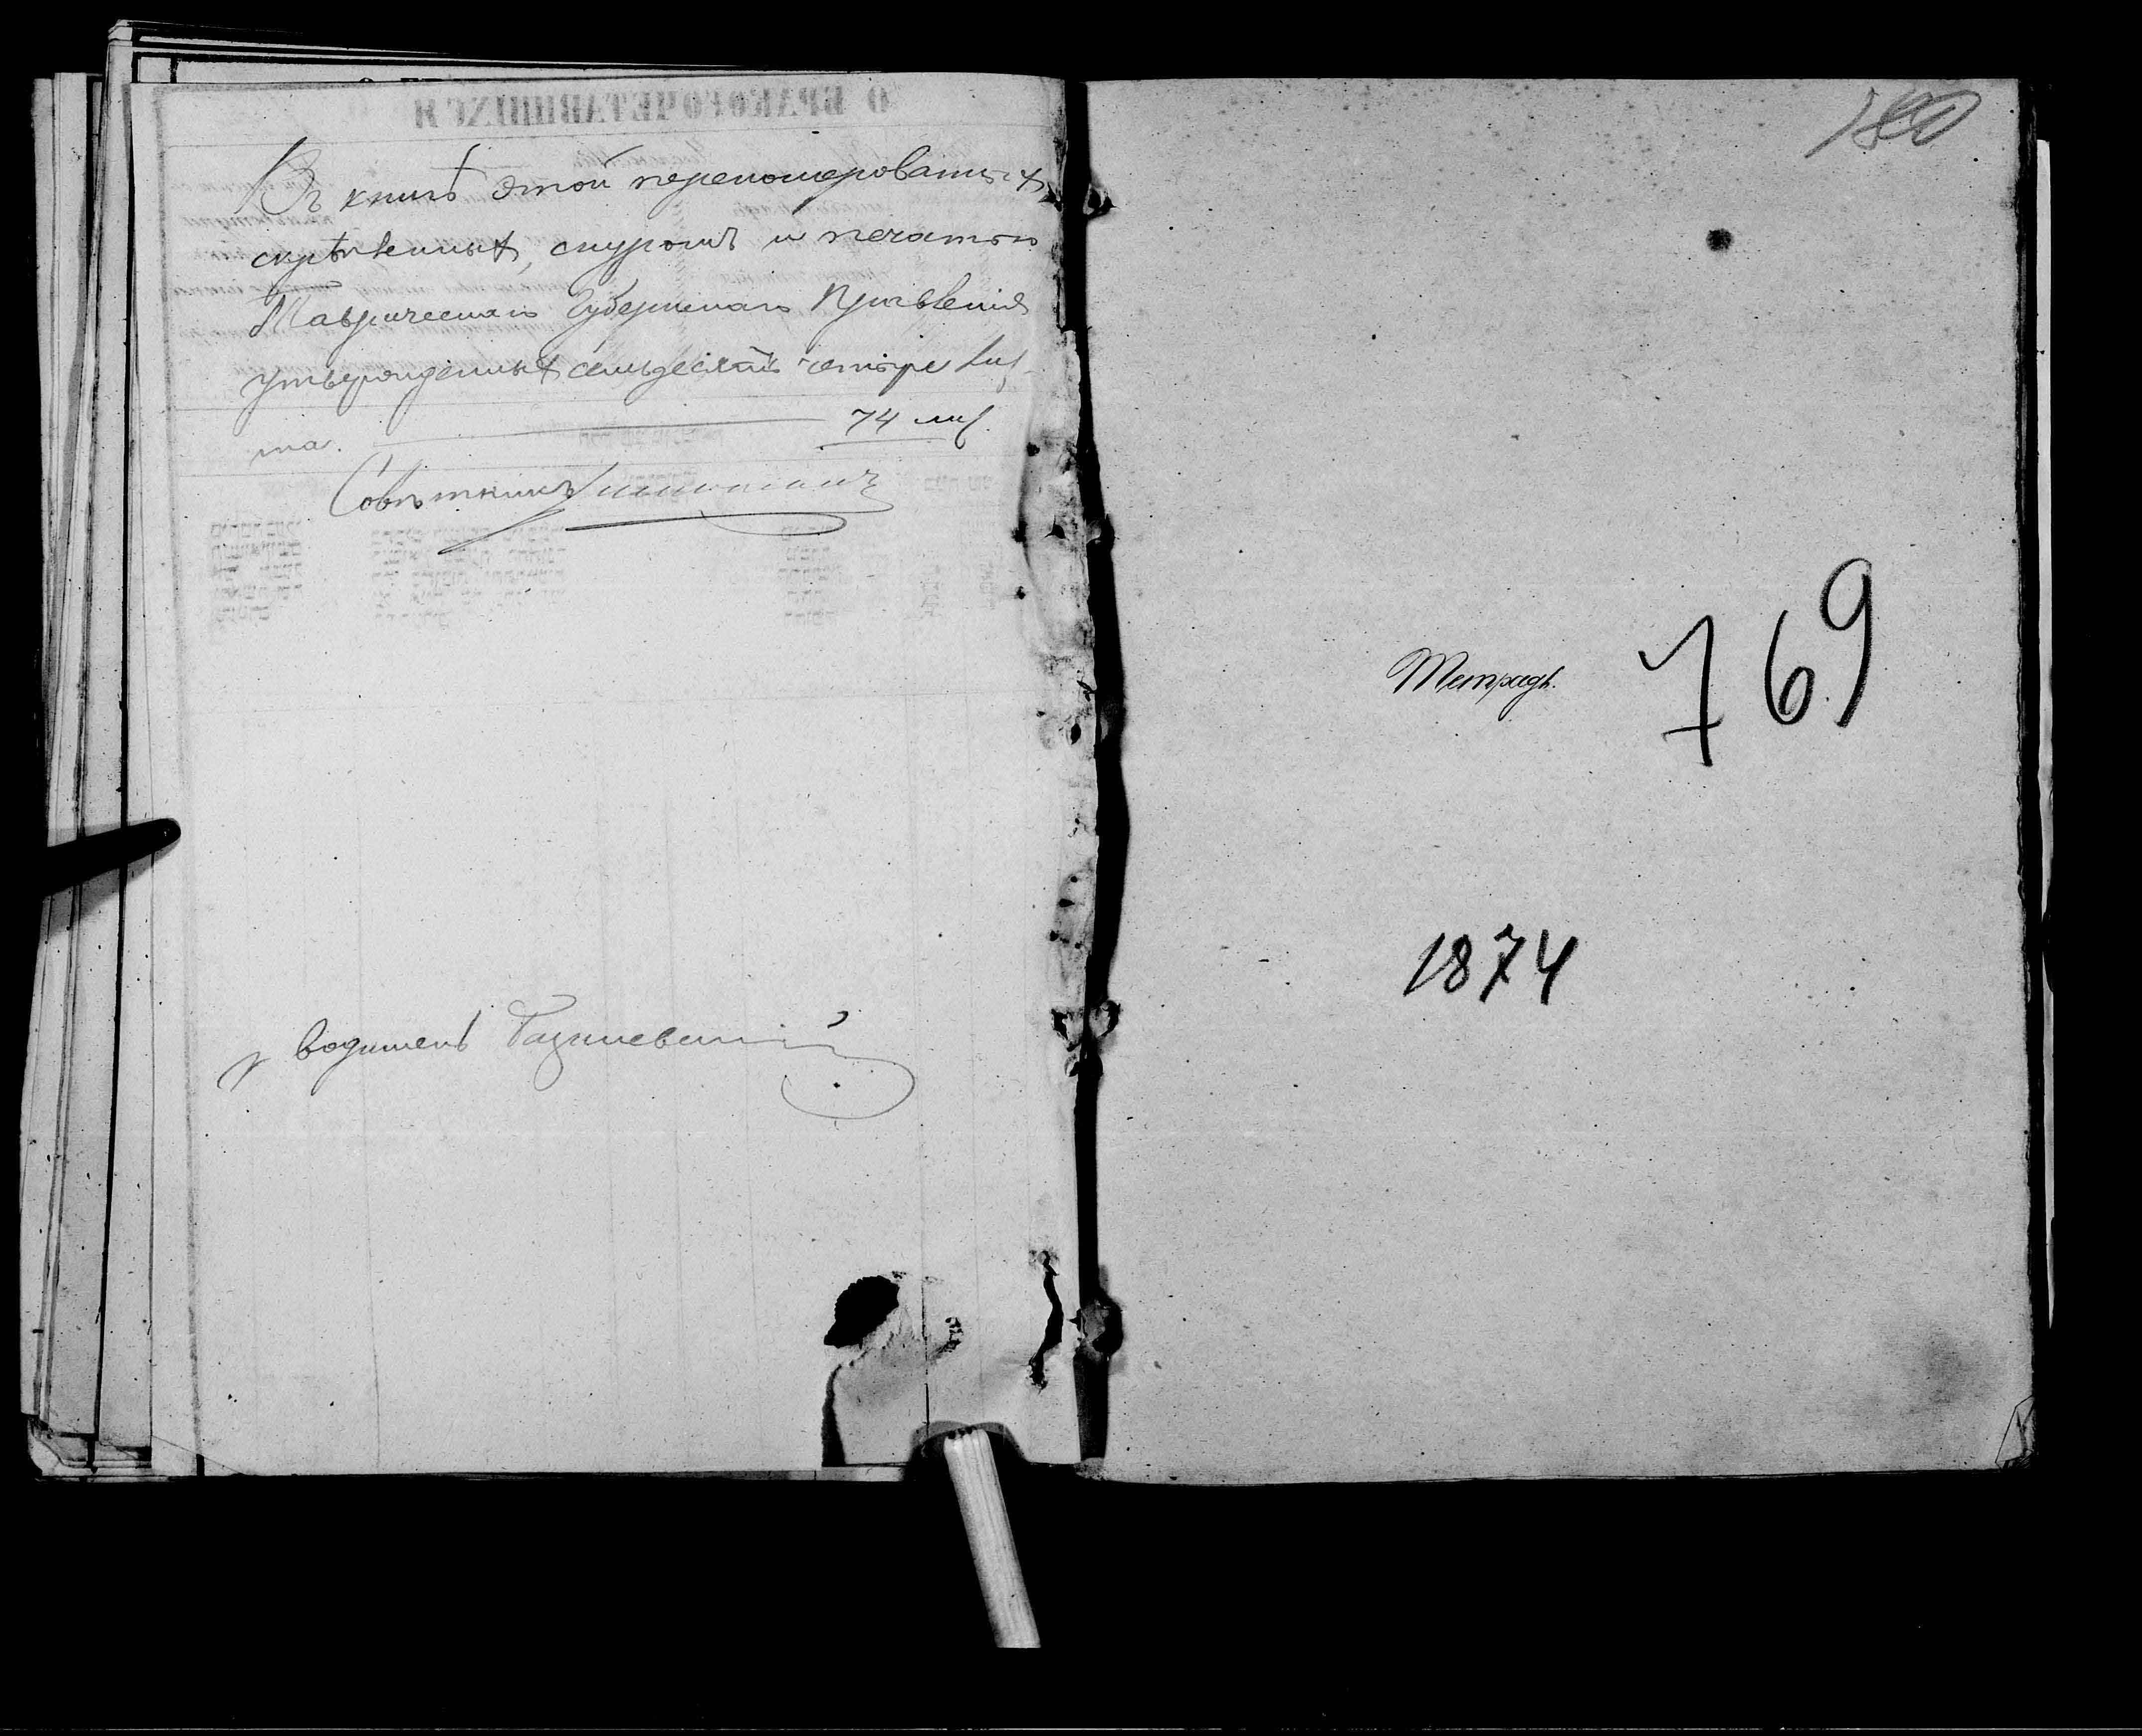 Въ книгѣ этой перенумерованныхъ
скрѣпленныхъ, шнуромъ и печатью
Таврическаго Губернскаго Правленія
утвержденныхъ семьдесятъ четыре лис-
та. 74 лис.
Совѣтникъ
водитель
180
Тетрадь. 769
1874